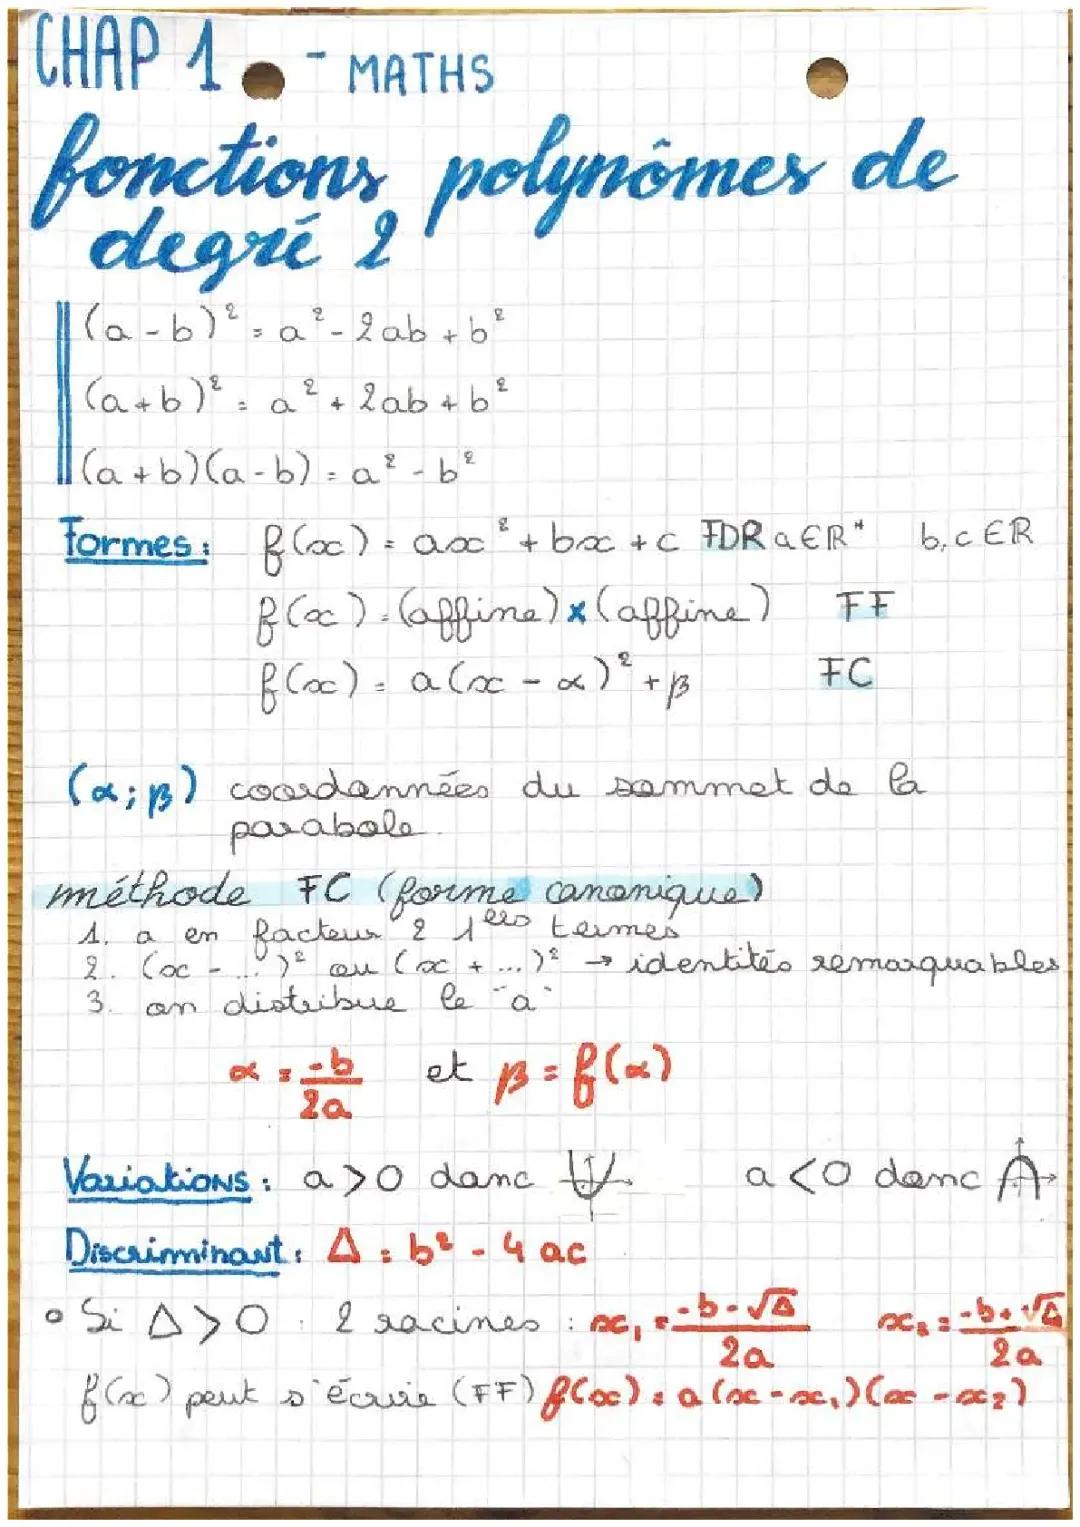 CHAP 1 - MATHS
fonctions polynômes de
degré 2
(a-b)² = a² - 2ab + b²
(a+b)² = a² + 2ab + b²
(a+b)(a-b) = a² - b²
Formes: f(x) = ax² + bx + c FDR a∈R* b,c ∈R
f(x) = (affine) x (affine) FF
f(x) = a(x - α)² + β FC
(α;β) coordonnées du sommet de la
parabole.
méthode FC (forme canonique)
1. a en facteur 2 1ers termes
2. (x - ...)² ou (x + ...)² → identités remarquables
3. on distribue le "a"
α = -b/2a et β = f(α)
Variations: a>0 donc a<0 donc
Discriminant: Δ = b² - 4ac
• Si Δ>0 : 2 racines : x₁ = -b-√Δ/2a x₂ = -b+√Δ/2a
f(x) peut s'écrire (FF) f(x) = a(x-x₁)(x-x₂)